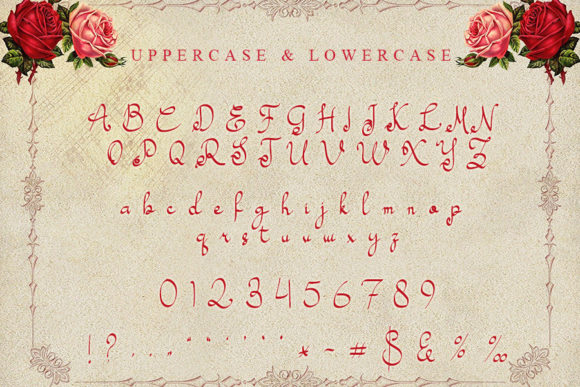 UPPERCASE & LOWERCASE
A B C D E F G H I J K L M N
O P Q R S T U V W X Y Z
a b c d e f g h i j k l m n o p
q r s t u v w x y z
0 1 2 3 4 5 6 7 8 9
! ? . , … * ~ # $ & % ‰